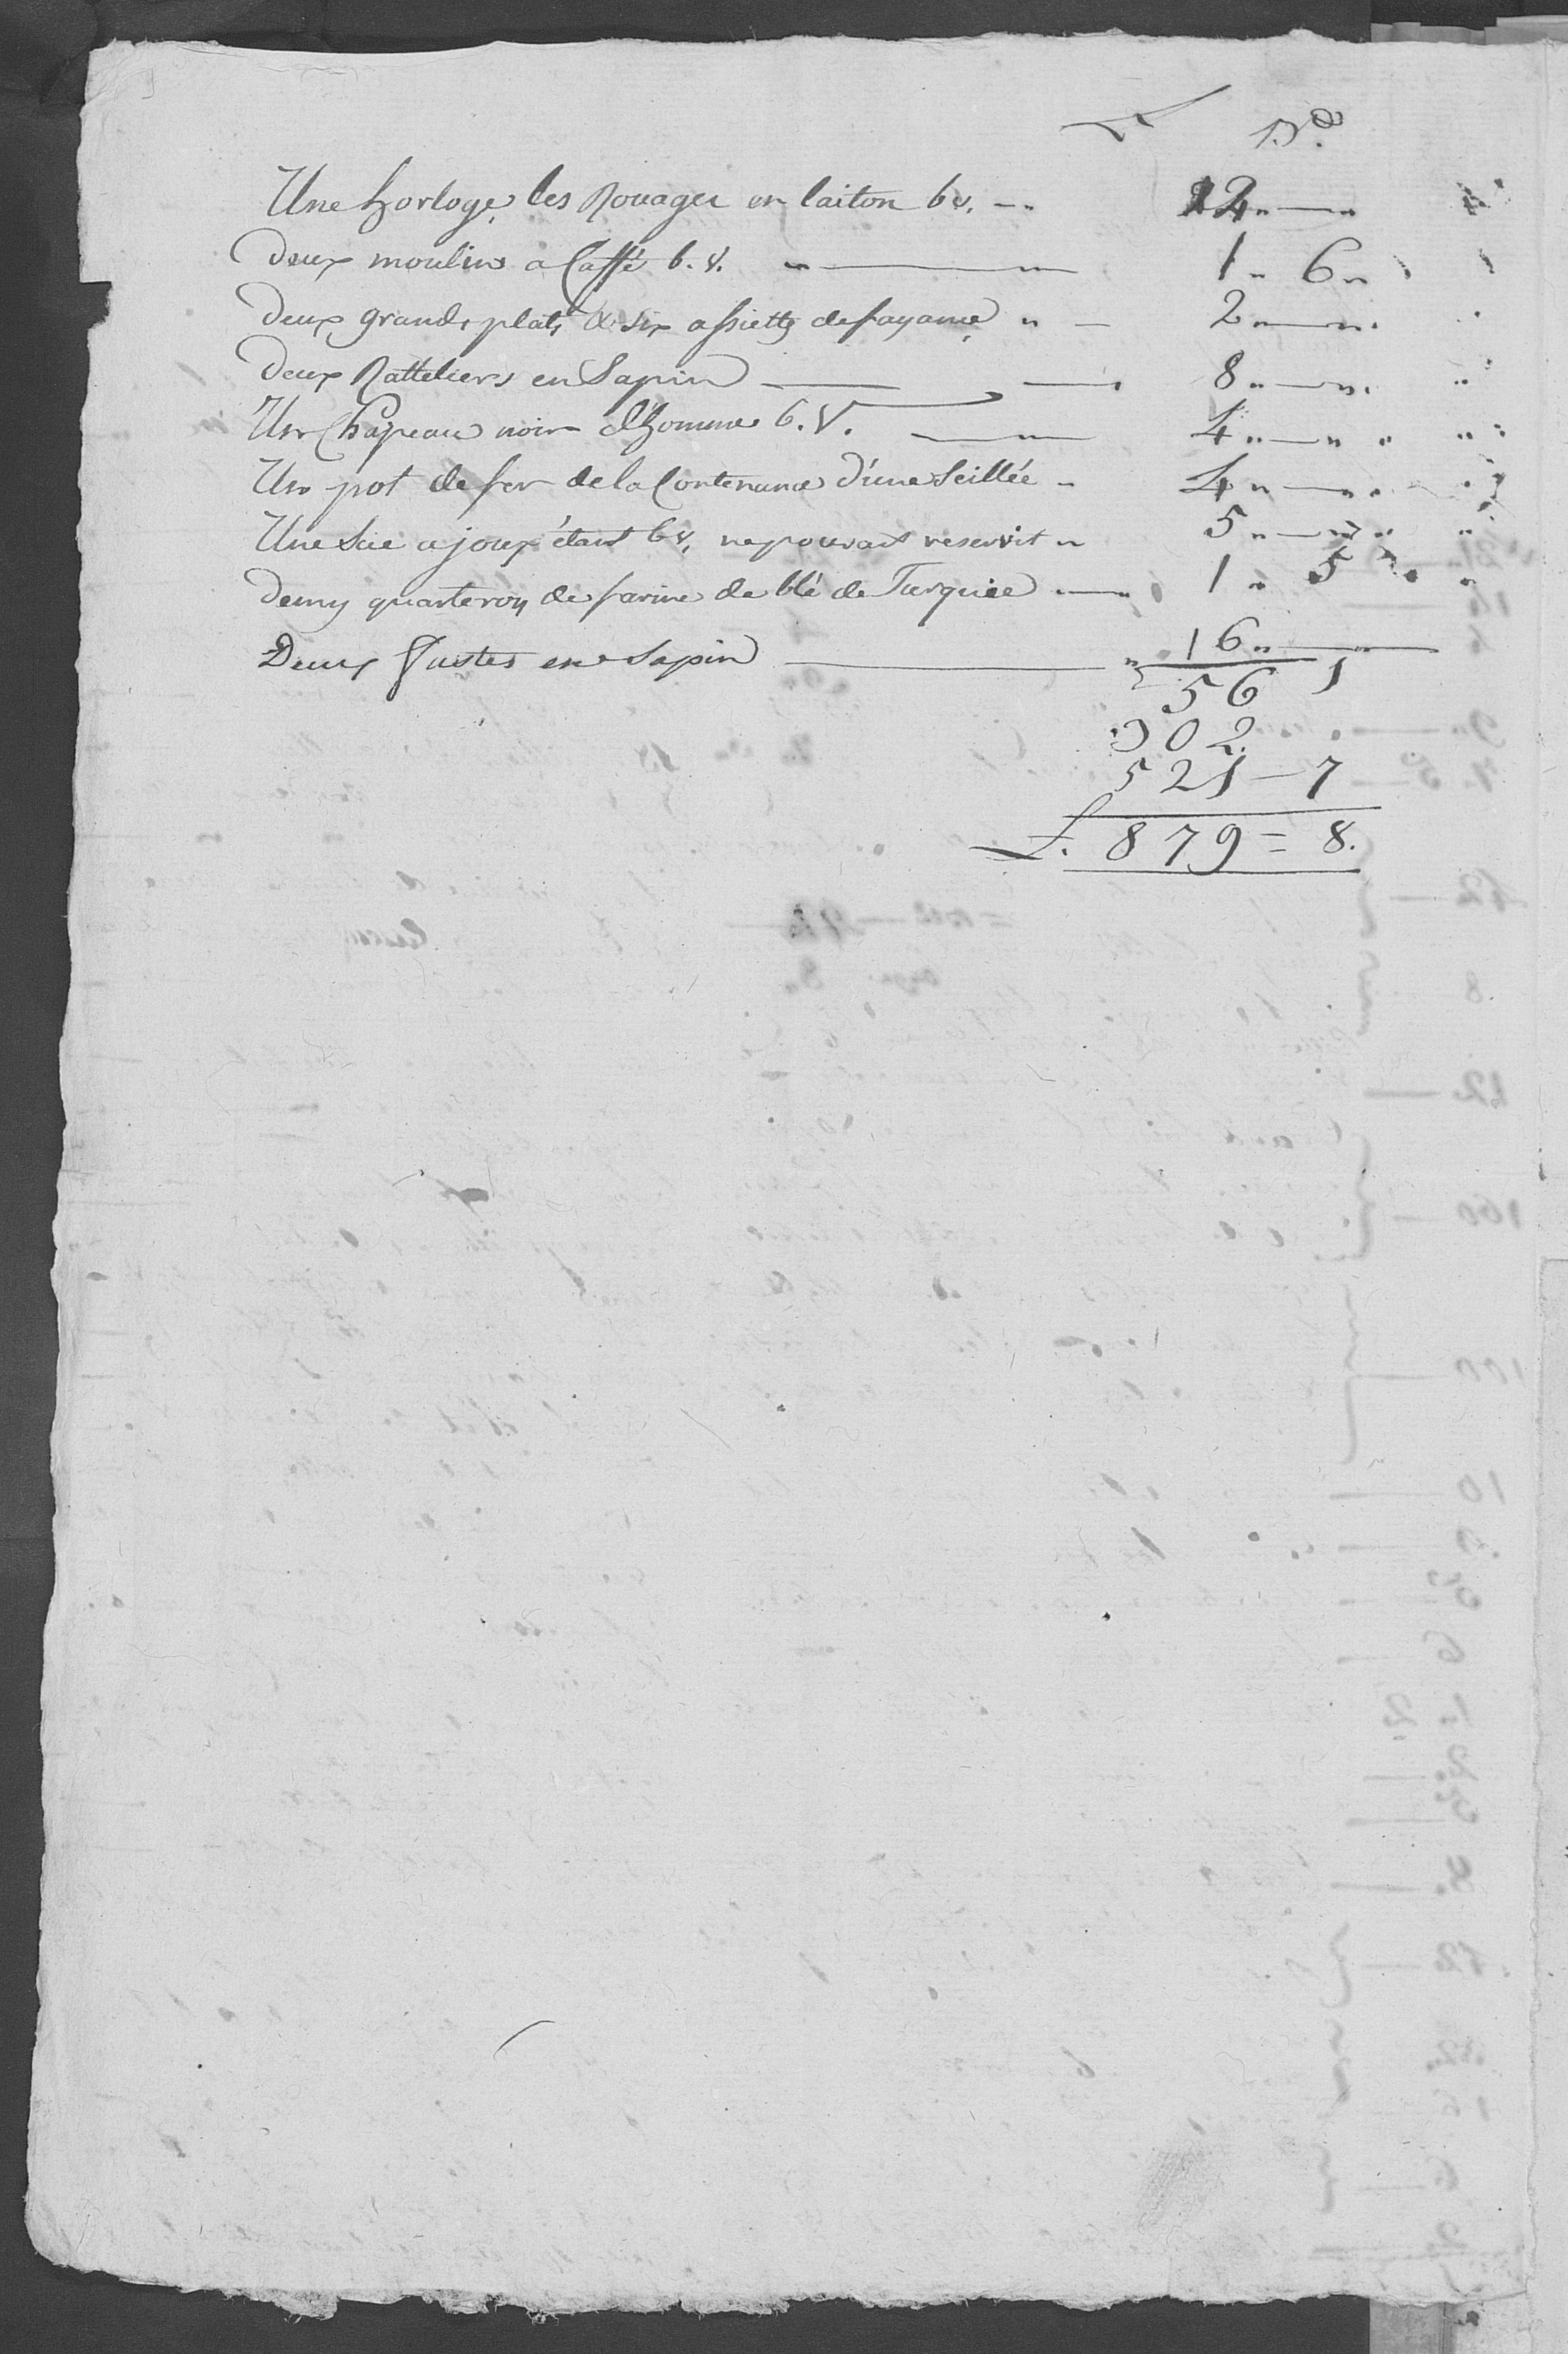 L Bz.
Une horloge, les Rouages en laiton b v. 14 "
deux moulins à Caffé b. v. " 1 " 6 "
deux grands plats & six assiettes de fayance " 2 "
deux Ratteliers en Sapin 8 "
Un Chapeau noir d'homme b. V. 4 "
Un pot de fer de la Contenance d'une Seillée 4 "
Une Scie a joux étant b v, ne pouvant reservir " 5 "
demy quarteron de farine de blé de Turquie 1 " 5
Deux Fustes en Sapin " 16 "
56 1
302.
521 – 7
L. 879 = 8.